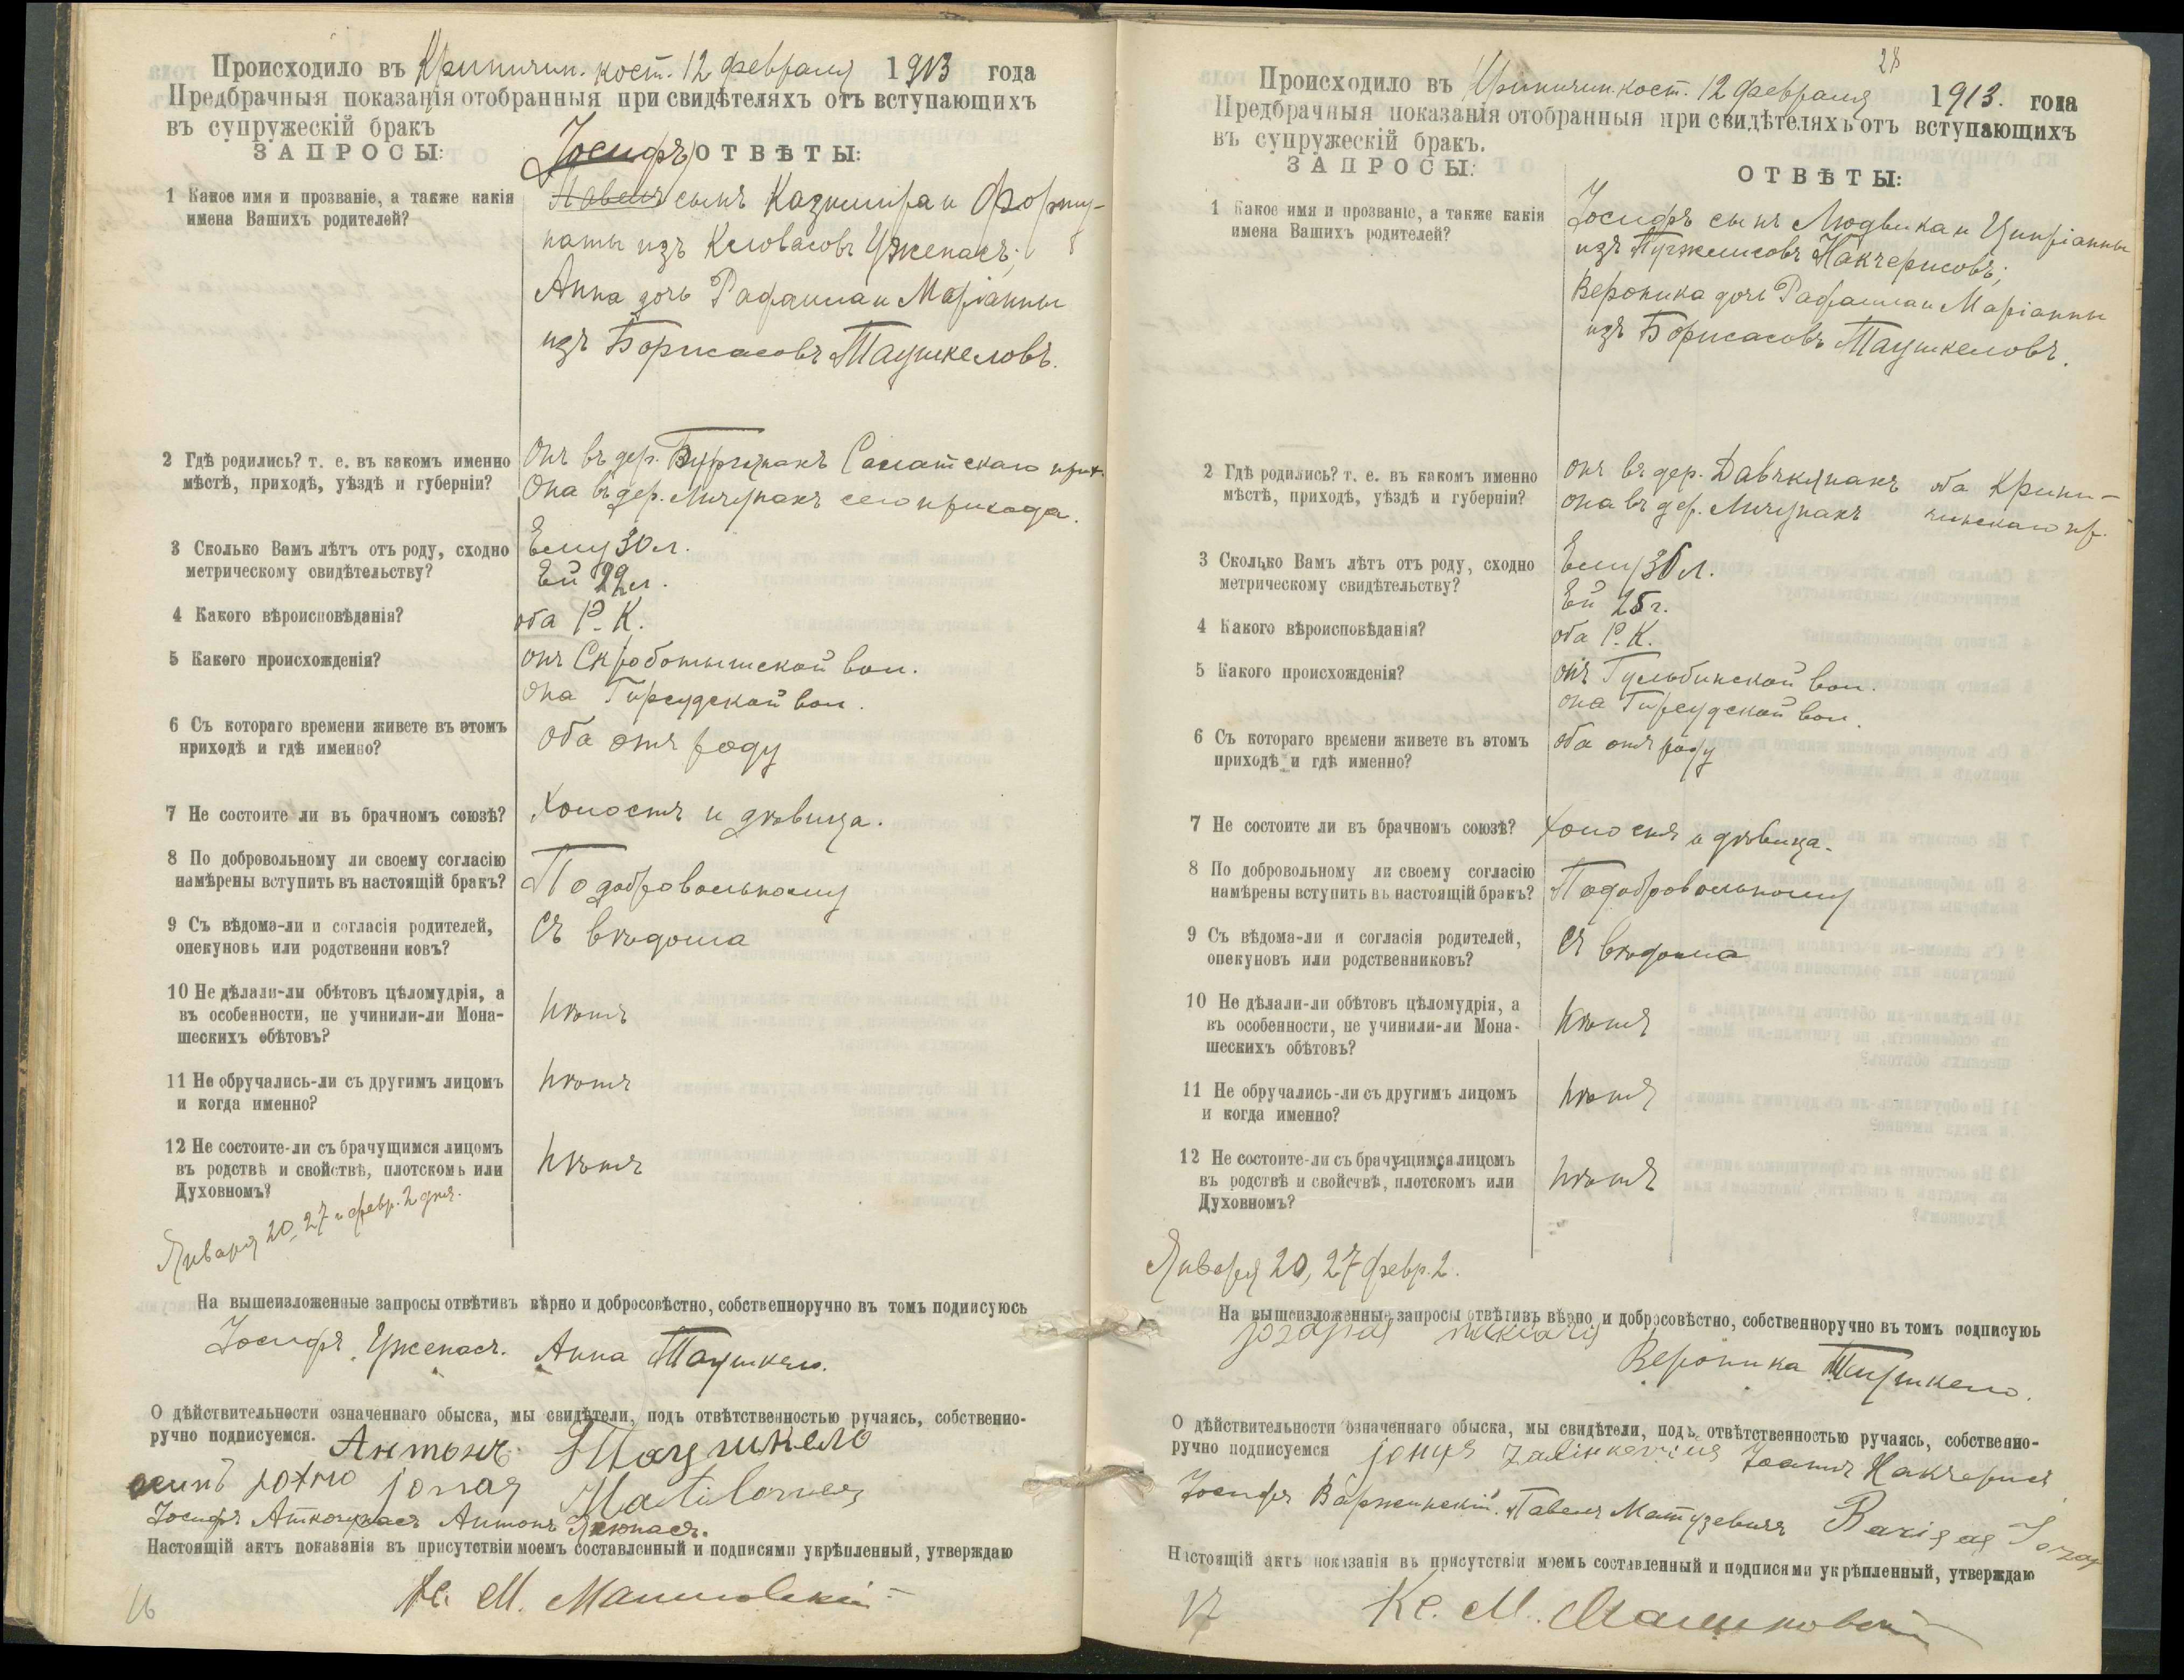 Происходило въ Криничин. кост. 12 февраля 1913 года
Предбрачныя показанія отобранныя при свидѣтеляхъ отъ вступающихъ
въ супружескій бракъ
ЗАПРОСЫ: ОТВѢТЫ:
Іосифъ
1 Какое имя и прозваніе, а также какія
имена Вашихъ родителей?
Павелъ сынъ Казимира и Форту-
наты изъ Кловасовъ Ужепасъ;
Анна дочь Рафаила и Маріанны
изъ Борисасовъ Таушкеловъ.
2 Гдѣ родились? т. е. въ какомъ именно
мѣстѣ, приходѣ, уѣздѣ и губерніи?
Онъ въ дер. Салатскаго прих.
Она въ дер. Личунахъ сего прихода.
3 Сколько Вамъ лѣтъ отъ роду, сходно
метрическому свидѣтельству?
Ему 30 л.
Ей 22 л.
4 Какого вѣроисповѣданія?
оба Р. К.
5 Какого происхожденія?
онъ Скроботышской вол.
она Гирсудской вол.
6 Съ котораго времени живете въ этомъ
приходѣ и гдѣ именно?
Оба отъ роду
7 Не состоите ли въ брачномъ союзѣ?
Холостъ и дѣвица.
8 По добровольному ли своему согласію
намѣрены вступить въ настоящій бракъ?
По добровольному
9 Съ вѣдома-ли и согласія родителей,
опекуновъ или родственни ковъ?
Съ вѣдома
10 Не дѣлали-ли обѣтовъ цѣломудрія, а
въ особенности, не учинили-ли Мона-
шескихъ обѣтовъ?
нѣтъ
11 Не обручались-ли съ другимъ лицомъ
и когда именно?
нѣтъ
12 Не состоите-ли съ брачущимся лицомъ
въ родствѣ и свойствѣ, плотскомъ или
Духовномъ?
нѣтъ
Января 20, 27 и февр. 2 дня.
На вышеизложенные запросы отвѣтивъ вѣрно и добросовѣстно, собственноручно въ томъ подписуюсь
Іосифъ Ужепасъ. Анна Таушкело.
О дѣйствительности означеннаго обыска, мы свидѣтели, подъ отвѣтственностью ручаясь, собственно-
ручно подписуемся. Антонъ Таушкело
jonas
Іосифъ Аткочунасъ Антонъ
Настоящій актъ показанія въ присутствіи моемъ составленный и подписями укрѣпленный, утверждаю
Кс. М. Машновскій
16
28
Происходило въ Криничин. кост. 12 февраля 1913. года
Предбрачныя показанія отобранныя при свидѣтеляхъ отъ вступающихъ
въ супружескій бракъ.
ЗАПРОСЫ: ОТВѢТЫ:
1 Какое имя и прозваніе, а также какія
имена Вашихъ родителей?
Іосифъ сынъ Людвика и Ципріанны
изъ Накчерисовъ;
Вероника дочь Рафаила и Маріанны
изъ Борисасовъ Таушкеловъ.
2 Гдѣ родились? т. е. въ какомъ именно
мѣстѣ, приходѣ, уѣздѣ и губерніи?
онъ въ дер. Давкунахъ оба Крини-
она въ дер. Личунахъ чинскаго пр.
3 Сколько Вамъ лѣтъ отъ роду, сходно
метрическому свидѣтельству?
Ему 30 л.
Ей 25 г.
4 Какого вѣроисповѣданія?
оба Р. К.
5 Какого происхожденія?
онъ Гульбинской вол.
она Гирсудской вол.
6 Съ котораго времени живете въ этомъ
приходѣ и гдѣ именно?
оба отъ роду
7 Не состоите ли въ брачномъ союзѣ?
Холостъ и дѣвица.
8 По добровольному ли своему согласію
намѣрены вступить въ настоящій бракъ?
По добровольному
9 Съ вѣдома-ли и согласія родителей,
опекуновъ или родственниковъ?
Съ вѣдома
10 Не дѣлали-ли обѣтовъ цѣломудрія, а
въ особенности, не учинили-ли Мона-
шескихъ обѣтовъ?
нѣтъ
11 Не обручались-ли съ другимъ лицомъ
и когда именно?
нѣтъ
12 Не состоите-ли съ брачущимся лицомъ
въ родствѣ и свойствѣ, плотскомъ или
Духовномъ?
нѣтъ
Января 20, 27 февр. 2.
На вышеизложенные запросы отвѣтивъ вѣрно и добросовѣстно, собственноручно въ томъ подписуюь
Вероника Таушкело.
О дѣйствительности означеннаго обыска, мы свидѣтели, подъ отвѣтственностью ручаясь, собственно-
ручно подписуемся jonas Zalinkevičius Іоаннъ Накчерисъ
Іосифъ Варжинскій. Павелъ Матузевичъ
Настоящій актъ показанія въ присутствіи моемъ составленный и подписями укрѣпленный, утверждаю
17 Кс. М. Машновскій